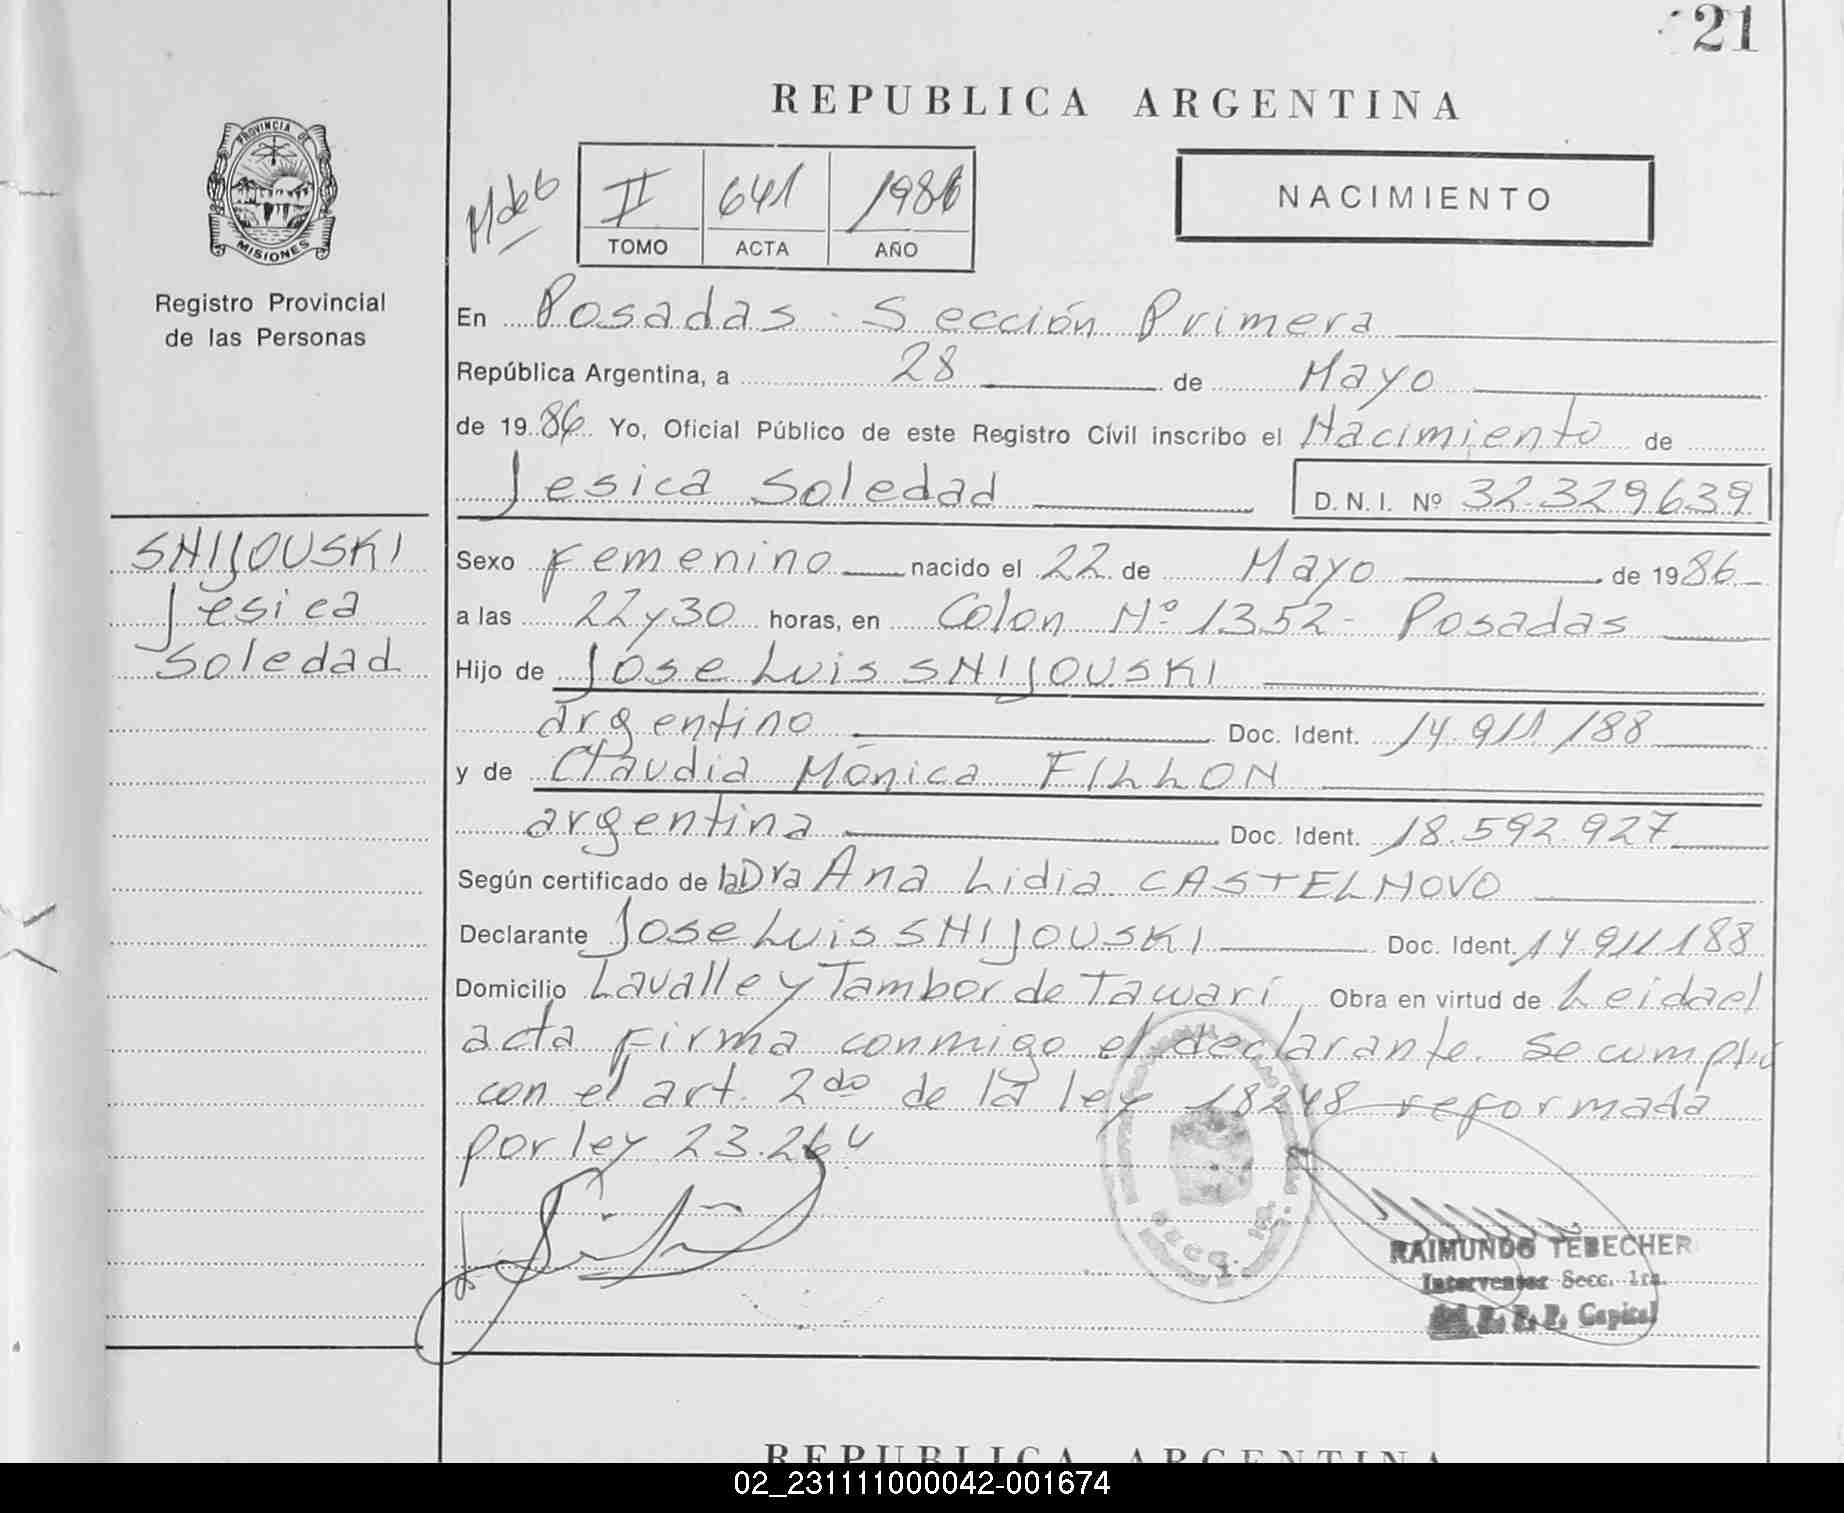 21
REPUBLICA ARGENTINA
PROVINCIA DE
MISIONES
Registro Provincial
de las Personas
M de 6
II 641 1986
TOMO ACTA AÑO
NACIMIENTO
En Posadas - Sección Primera
República Argentina, a 28 de Mayo
de 1986 Yo, Oficial Público de este Registro Civil inscribo el Nacimiento de
Jesica Soledad D.N.I. Nº 32.329639
SNIJOUSKI
Jesica
Soledad
Sexo Femenino nacido el 22 de Mayo de 1986
a las 22 y 30 horas, en Colon Nº 1352 - Posadas
Hijo de Jose Luis SNIJOUSKI
argentino Doc. Ident. 14.911.188
y de Claudia Mónica FILLON
argentina Doc. Ident. 18.592.927
Según certificado de la Dra Ana Lidia CASTELNOVO
Declarante Jose Luis SNIJOUSKI Doc. Ident. 14.911.188
Domicilio Lavalle y Tambor de Tacuari Obra en virtud de Leida el
acta firma conmigo el declarante. Se cumplio
con el art. 2do de la ley 18248 reformada
por ley 23.264
SECC. 1
RAIMUNDO TEBECHER
Interventor Secc. 1ra.
R. P. P. Capital
REPUBLICA ARGENTINA
02_231111000042-001674